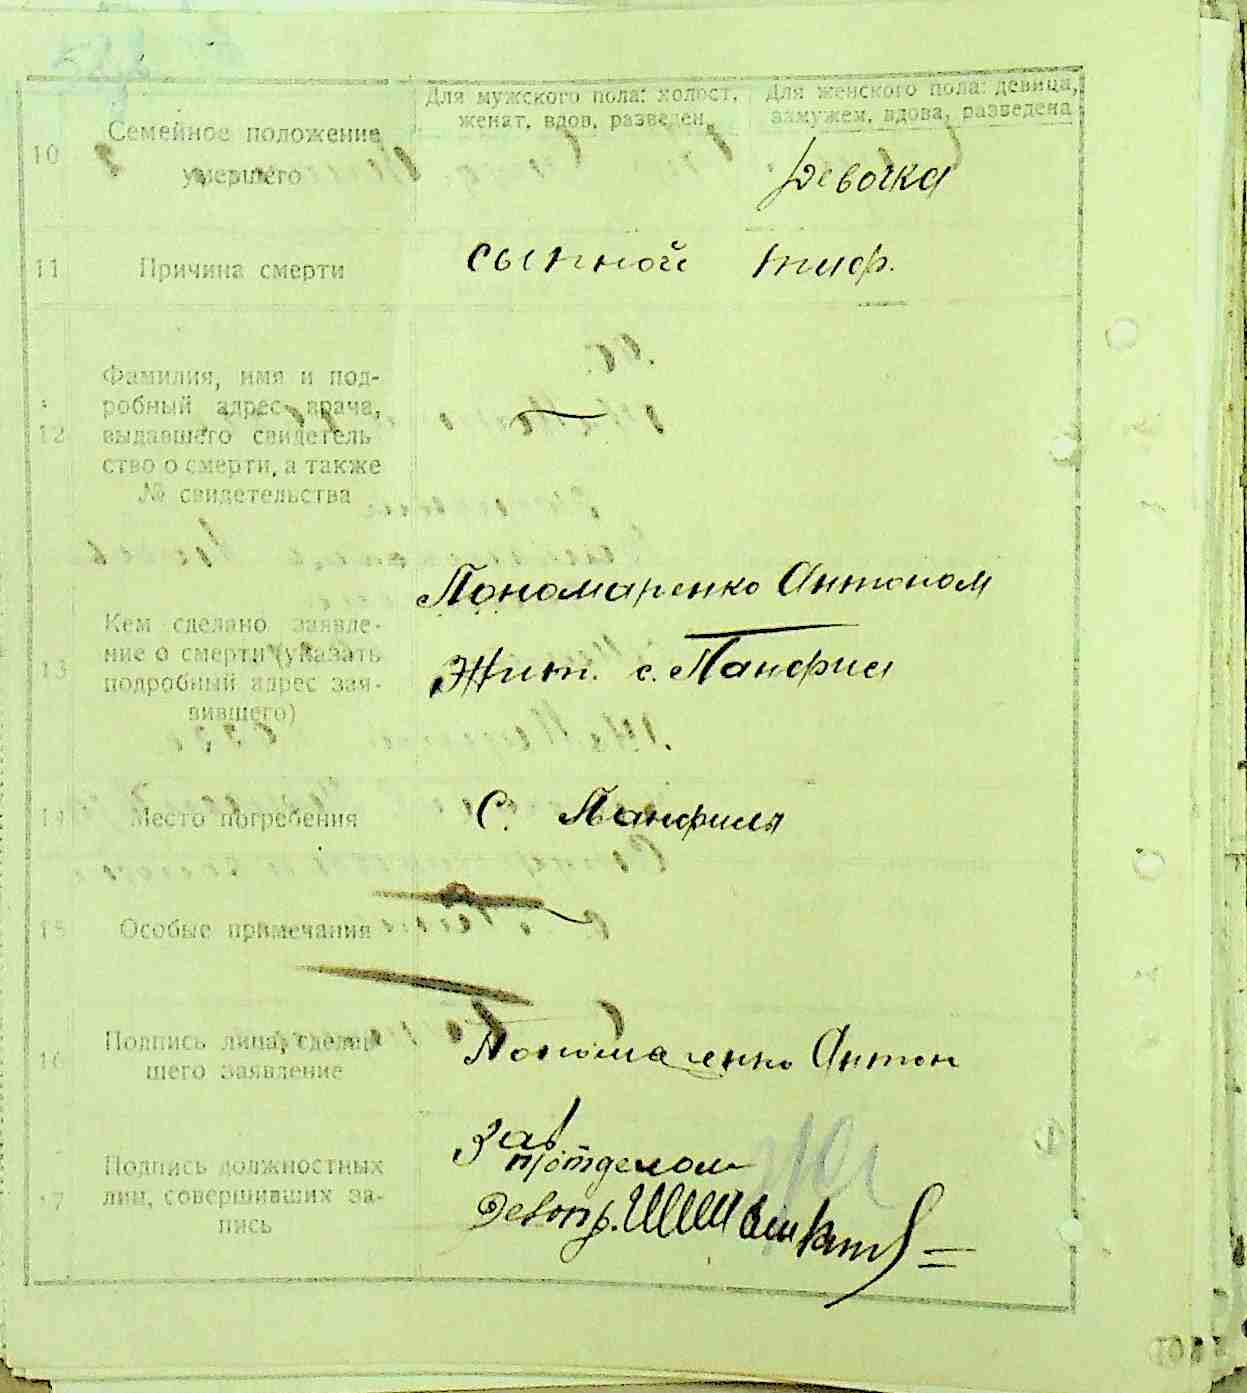 Для мужского пола: холост, женат, вдов, разведен
Для женского пола: девица, замужем, вдова, разведена
10 Семейное положение умершего
Девочка
11 Причина смерти
сыпной тиф.
12 Фамилия, имя и под-
робный адрес врача,
выдавшего свидетель
ство о смерти, а также
№ свидетельства
Кем сделано заявле-
13 ние о смерти (указать
подробный адрес зая-
вившего)
Пономаренко Антоном
Жит. с. Панфил
14 Место погребения
С. Панфиля
15 Особые примечания
16 Подпись лица, сделав
шего заявление
Пономаренко Антон
17 Подпись должностных
лиц, совершивших за-
пись
Зав